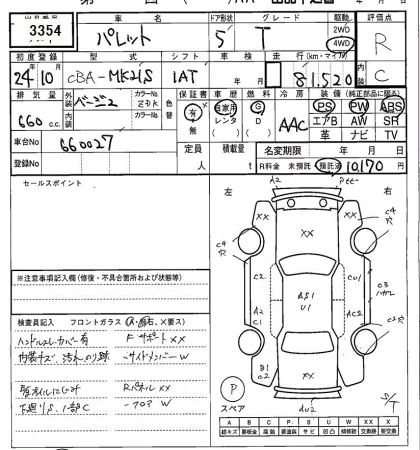 出品番号 車名 ドア形状 グレード 駆動 評価点
3354 パレット 5 T 2WD 4WD R
初度登録 型式 シフト 車検 走行(km・マイル) 内装
24年10月 CBA-MK21S IAT 年 月 81,520 C
排気量 外装 ベージュ カラーNo. ZDK 色替 保証書 車歴 燃料 冷房 装備(純正部品に限る)
660 c.c. 内装 カラーNo. 有 無 自家用 レンタ G D AAC PS PW ABS
エアB AW SR
革 ナビ TV
車台No 660027 定員 人 積載量 t 名変期限 年 月 日
登録No R料金 未預託 預託済 10,170 円
セールスポイント
左 右
A2
C4 穴 XX XX C4 穴
C2 CU1 C3
AS1 U1
A2 C1 AC2
C4 穴 C3 穴
B1 C2
XX
P
スペア AU2 S/T
※注意事項記入欄(修復・不具合箇所および状態等)
検査員記入 フロントガラス(A・飛石、X要ス)
ハンドルスレ カバー有 Fサポート XX
内装キズ、汚れ、のり跡 -サイドメンバー W
Rパネル XX
下廻りS、1部C -フロア W
A B C P S U W X XX
線キズ 要板金 腐蝕 要塗装 サビ 凹凸 補修跡 交換跡 要交換